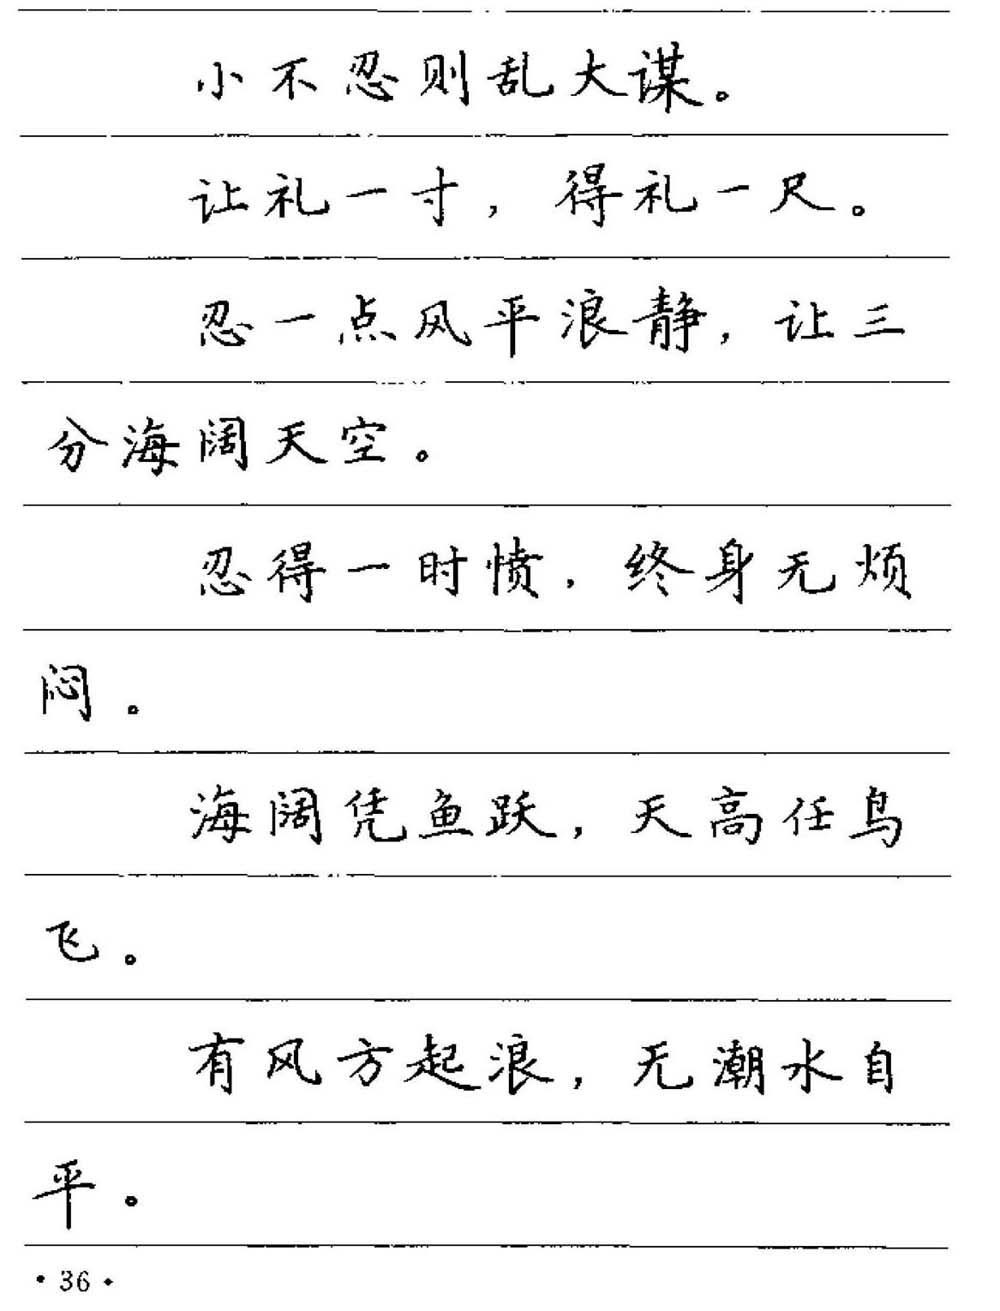 小不忍则乱大谋。
让礼一寸，得礼一尺。
忍一点风平浪静，让三
分海阔天空。
忍得一时愤，终身无烦
闷。
海阔凭鱼跃，天高任鸟
飞。
有风方起浪，无潮水自
平。
·36·